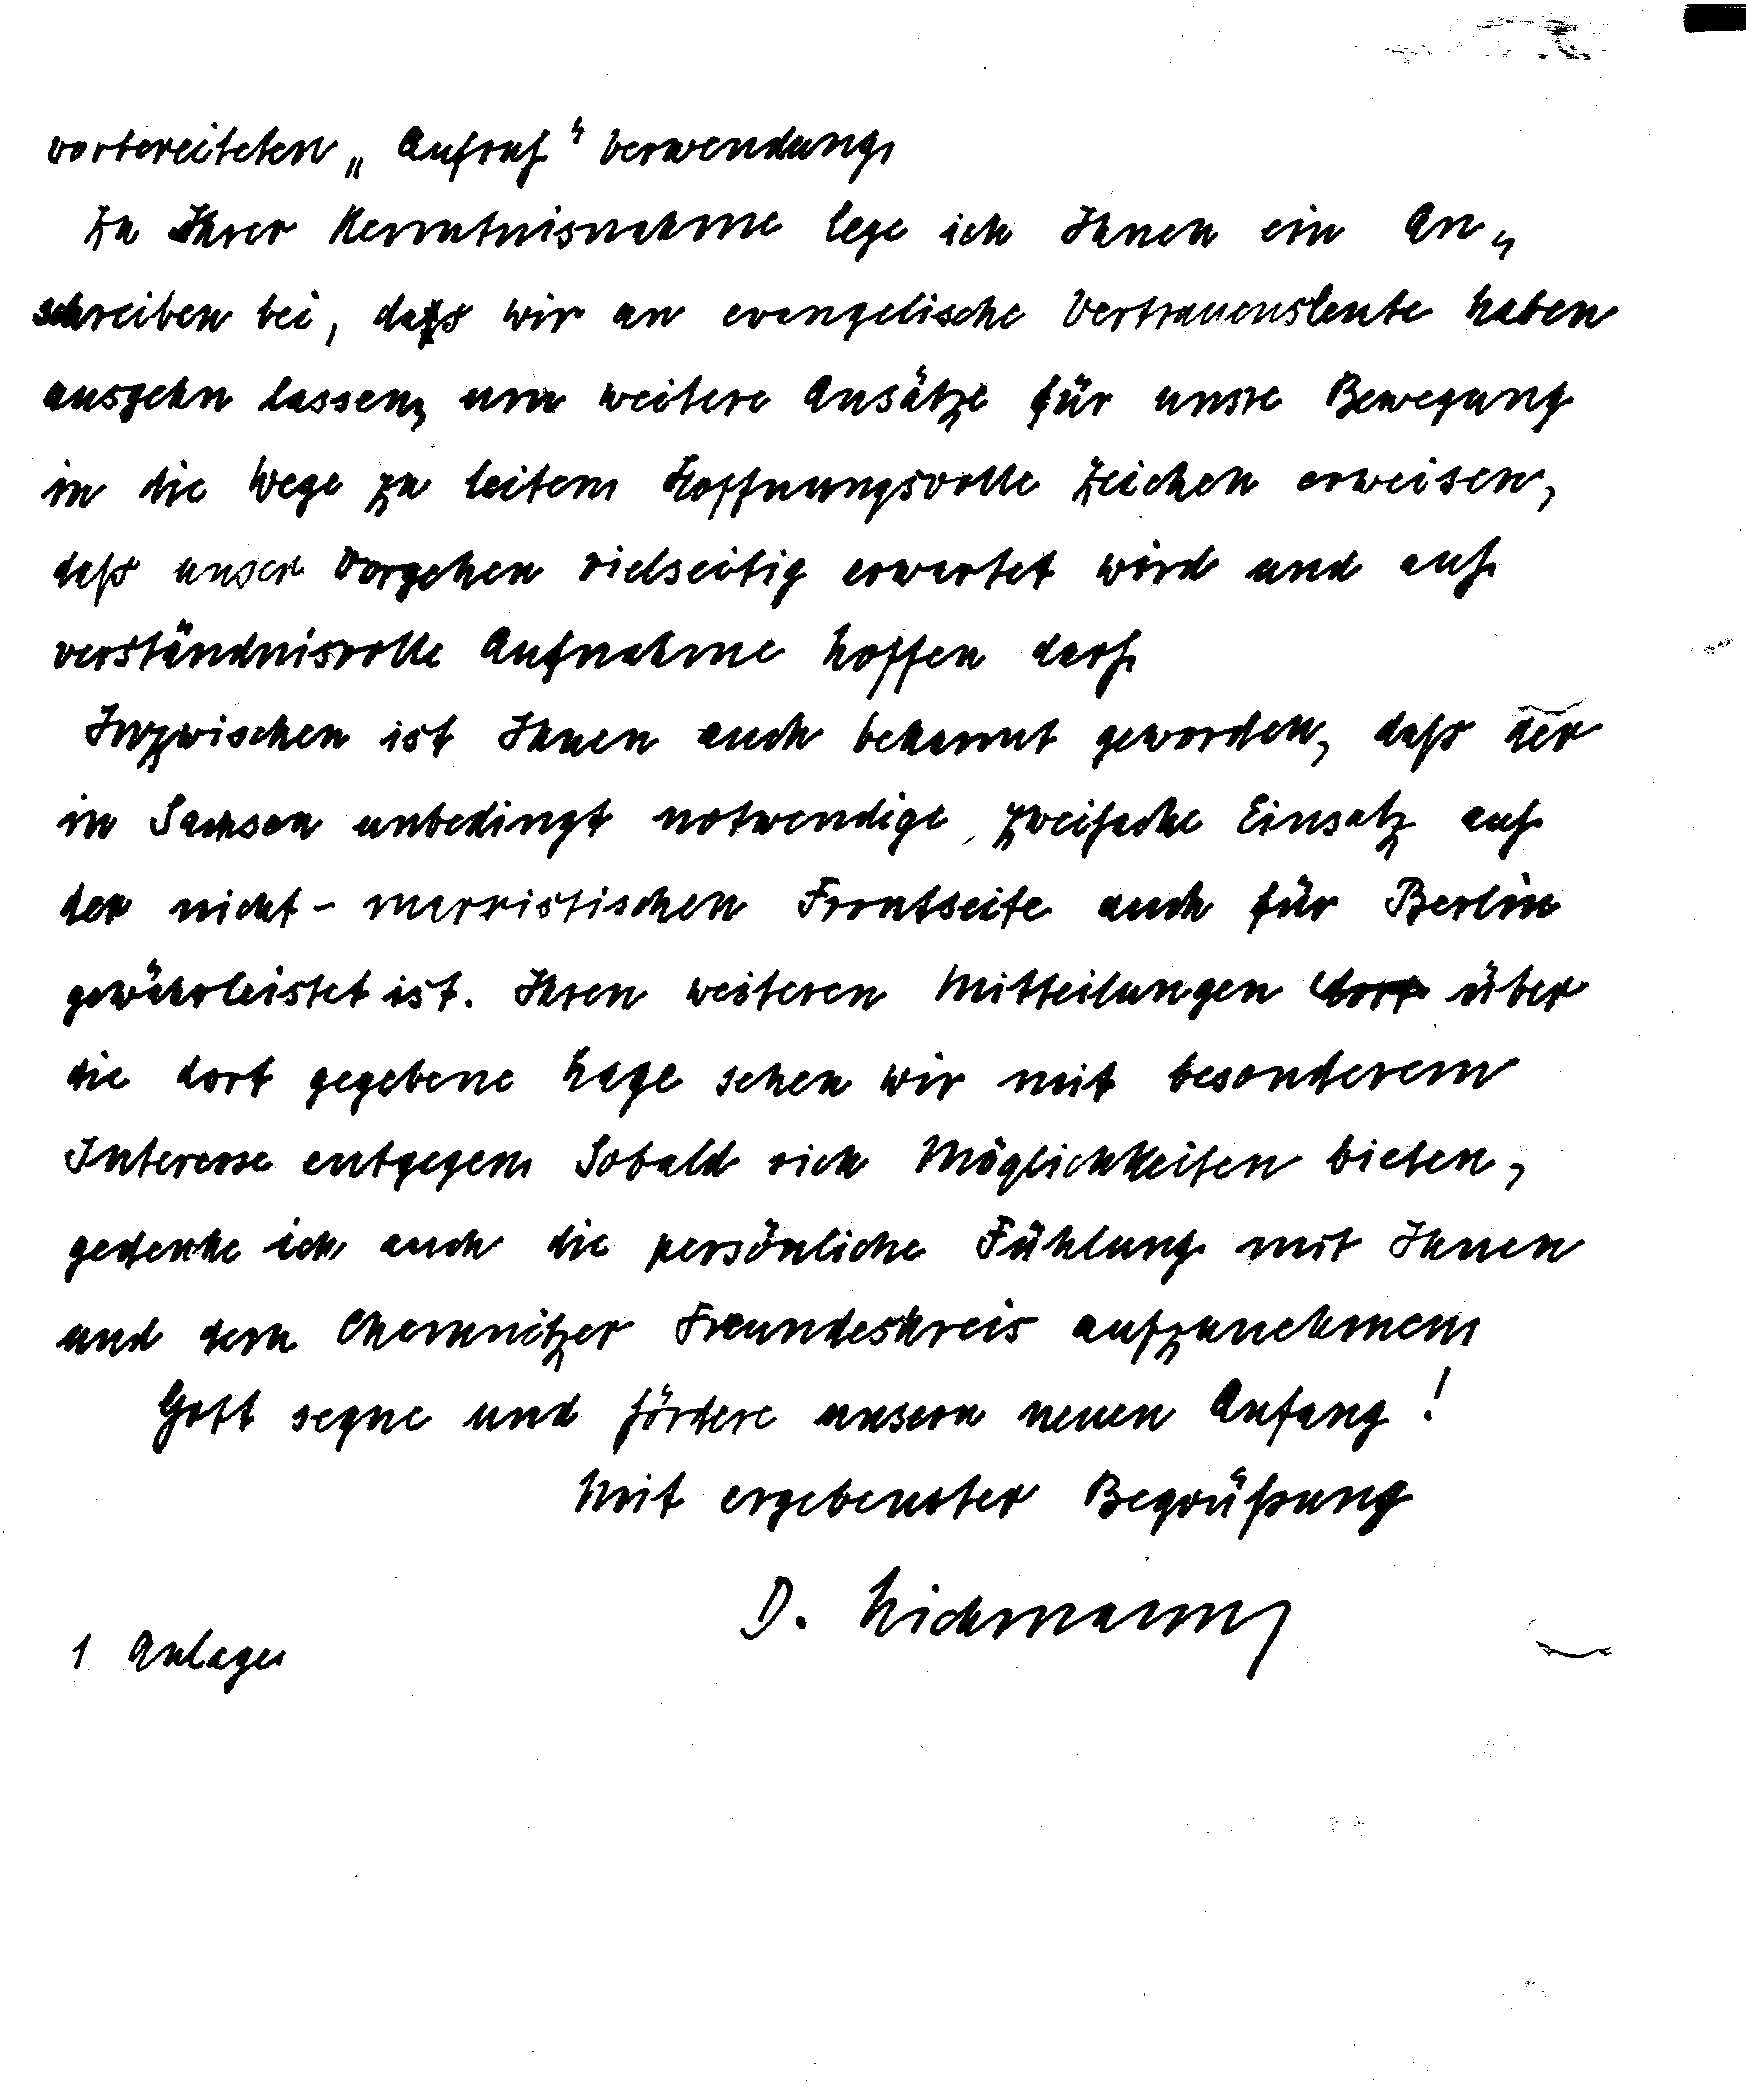 vorbereiteten „Aufruf“ Verwendung.
Zu Ihrer Kenntnisnahme lege ich Ihnen ein An„
schreiben bei, daß wir an evangelische Vertrauensleute haben
ausgehn lassen, um weitere Ansätze für unsre Bewegung
in die Wege zu leiten. Hoffnungsvolle Zeichen erweisen,
daß unser Vorgehen vielseitig erwartet wird und auf
verständnisvolle Aufnahme hoffen darf.
Inzwischen ist Ihnen auch bekannt geworden, daß der
in Sachsen unbedingt notwendige, zweifache Einsatz auf
der nicht-marxistischen Frontseite auch für Berlin
gewährleistet ist. Ihren weiteren Mitteilungen über
die dort gegebene Lage sehen wir mit besonderem
Interesse entgegen. Sobald sich Möglichkeiten bieten,
gedenke ich auch die persönliche Fühlung mit Ihnen
und dem Chemnitzer Freundeskreis aufzunehmen.
Gott segne und fördere unsern neuen Anfang!
Mit ergebenster Begrüßung
D. Hickmann
1 Anlage.